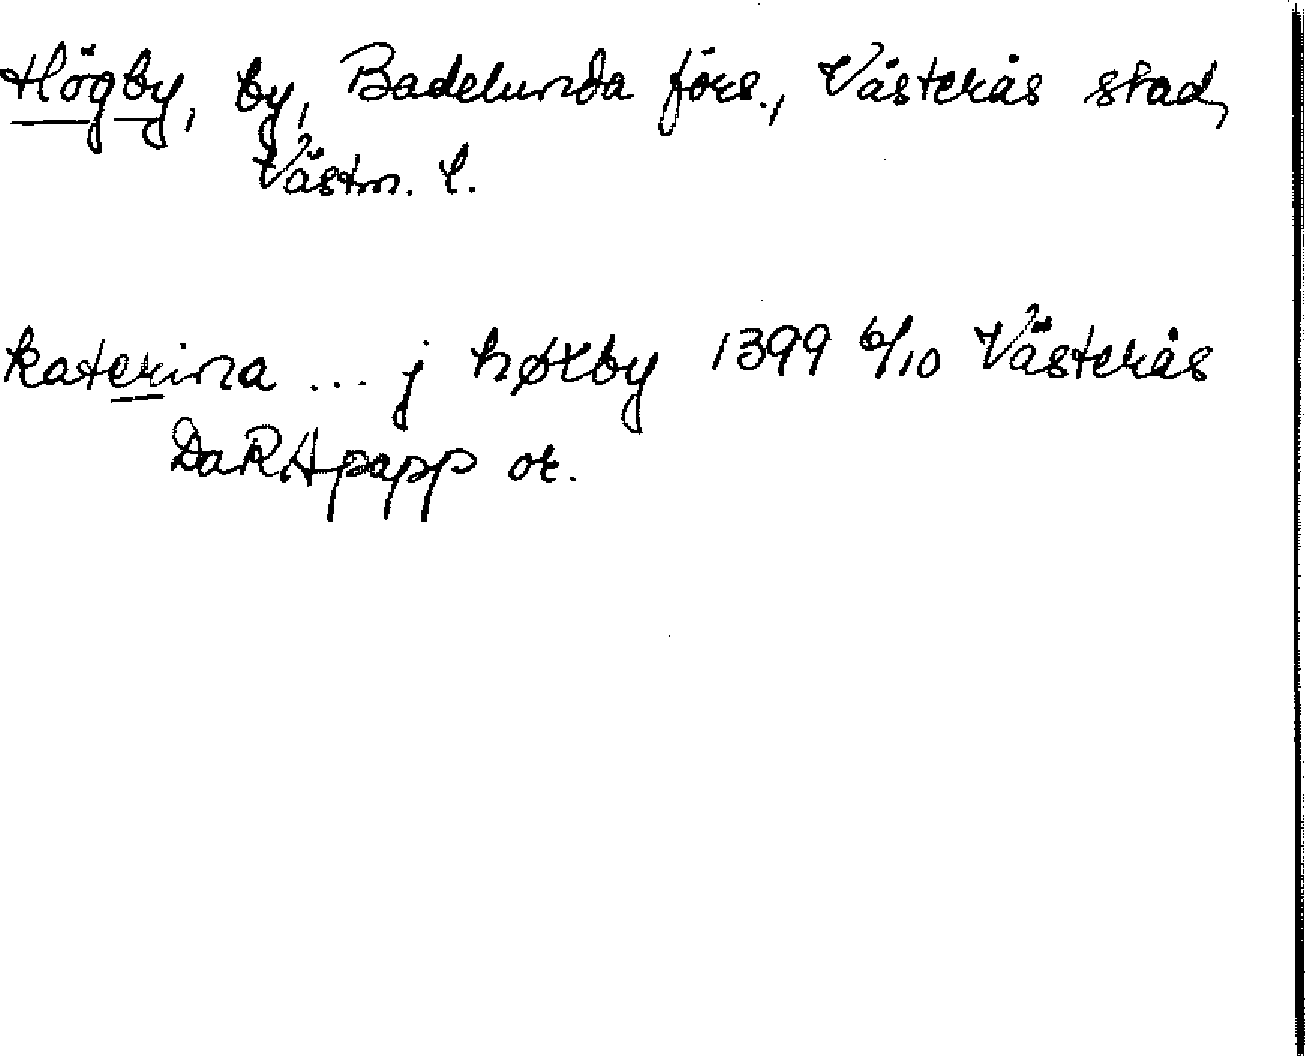 Högby, by, Badelunda förs., Västerås stad,
Västm. l.
katerina ... j høxby 1399 6/10 Västerås
DaRApapp or.